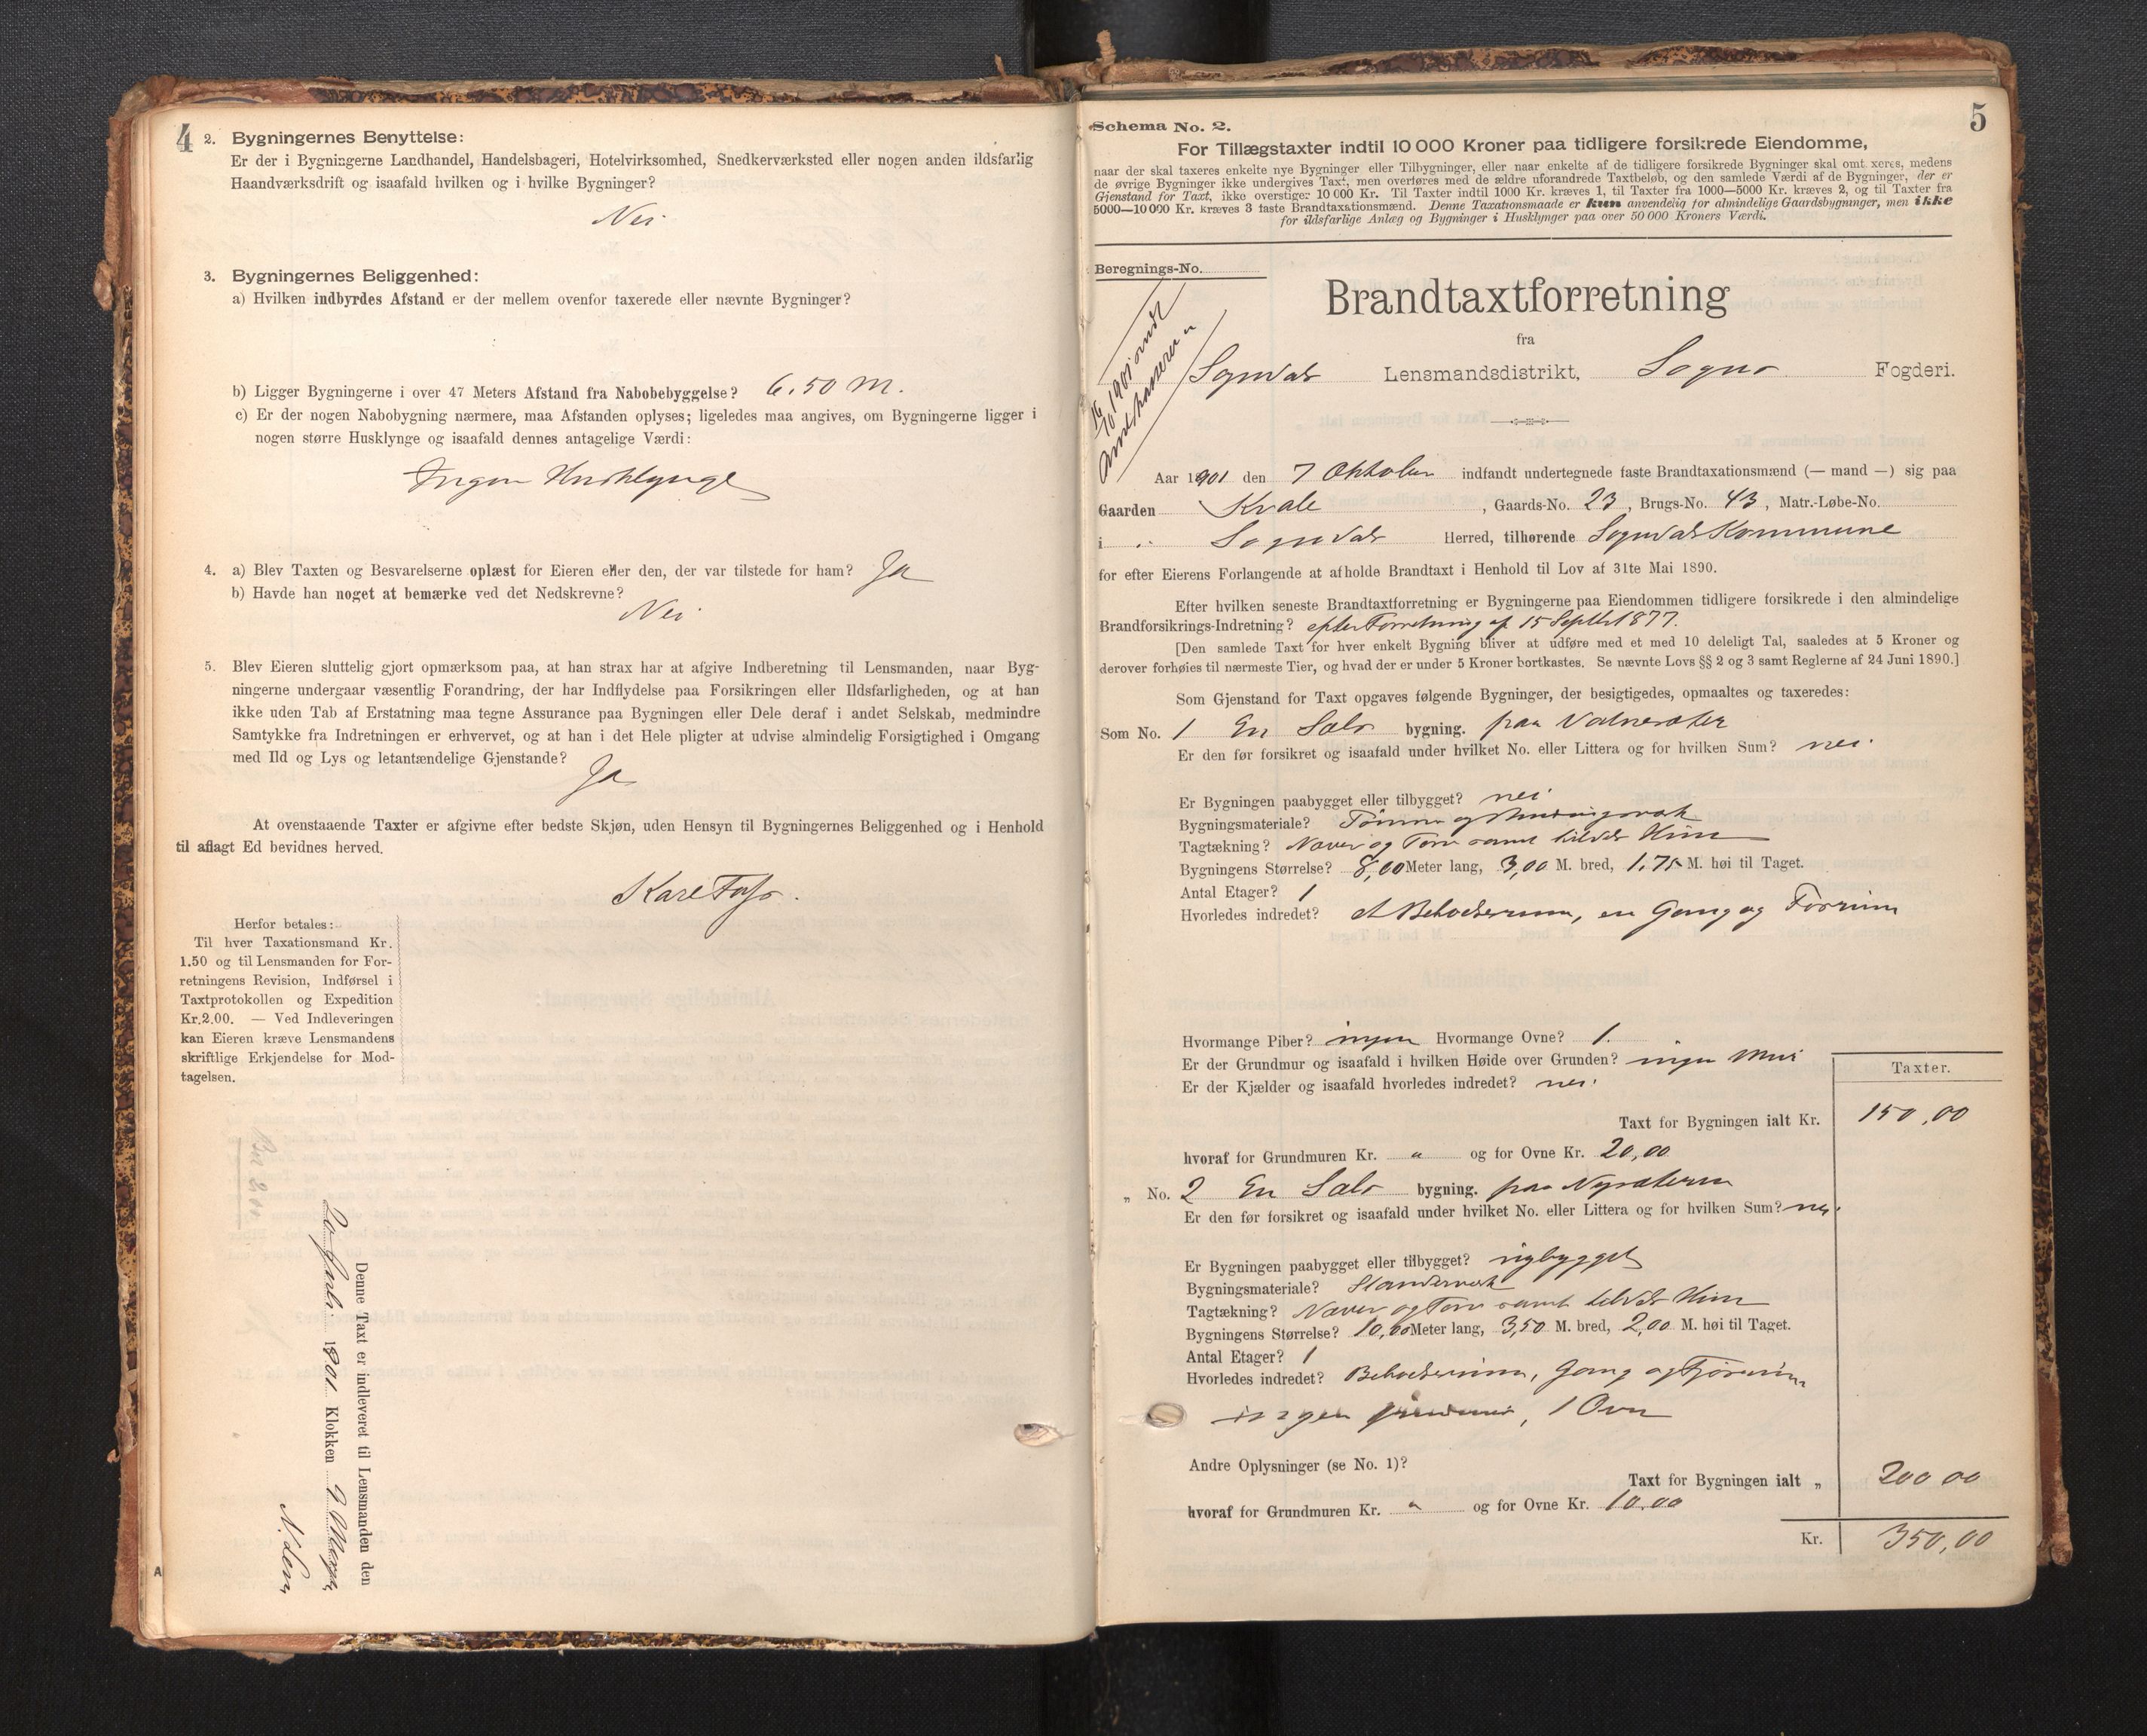 4
2. Bygningernes Benyttelse:
Er der i Bygningerne Landhandel, Handelsbageri, Hotelvirksomhed, Snedkerværksted eller nogen anden ildsfarlig
Haandværksdrift og isaafald hvilken og i hvilke Bygninger?
Nei
3. Bygningernes Beliggenhed:
a) Hvilken indbyrdes Afstand er der mellem ovenfor taxerede eller nævnte Bygninger?
b) Ligger Bygningerne i over 47 Meters Afstand fra Nabobebyggelse? 6.50 M.
c) Er der nogen Nabobygning nærmere, maa Afstanden oplyses; ligeledes maa angives, om Bygningerne ligger i
nogen større Husklynge og isaafald dennes antagelige Værdi:
Ingen Husklynge
4. a) Blev Taxten og Besvarelserne oplæst for Eieren eller den, der var tilstede for ham? Ja
b) Havde han noget at bemærke ved det Nedskrevne?
Nei
5. Blev Eieren sluttelig gjort opmærksom paa, at han strax har at afgive Indberetning til Lensmanden, naar Byg-
ningerne undergaar væsentlig Forandring, der har Indflydelse paa Forsikringen eller Ildsfarligheden, og at han
ikke uden Tab af Erstatning maa tegne Assurance paa Bygningen eller Dele deraf i andet Selskab, medmindre
Samtykke fra Indretningen er erhvervet, og at han i det Hele pligter at udvise almindelig Forsigtighed i Omgang
med Ild og Lys og letantændelige Gjenstande?
Ja
At ovenstaaende Taxter er afgivne efter bedste Skjøn, uden Hensyn til Bygningernes Beliggenhed og i Henhold
til aflagt Ed bevidnes herved.
Herfor betales:
Til hver Taxationsmand Kr.
1.50 og til Lensmanden for For-
retningens Revision, Indførsel i
Taxtprotokollen og Expedition
Kr. 2.00. — Ved Indleveringen
kan Eieren kræve Lensmandens
skriftlige Erkjendelse for Mod-
tagelsen.
Denne Taxt er indleveret til Lensmanden den
20 1901 Klokken 9
A
5
Schema No. 2.
For Tillægstaxter indtil 10 000 Kroner paa tidligere forsikrede Eiendomme,
naar der skal taxeres enkelte nye Bygninger eller Tilbygninger, eller naar enkelte af de tidligere forsikrede Bygninger skal omt xeres, medens
de øvrige Bygninger ikke undergives Taxt, men overføres med de ældre uforandrede Taxtbeløb, og den samlede Værdi af de Bygninger, der er
Gjenstand for Taxt, ikke overstiger 10 000 Kr. Til Taxter indtil 1000 Kr. kræves 1, til Taxter fra 1000—5000 Kr. kræves 2, og til Taxter fra
5000—10 000 Kr. kræves 3 faste Brandtaxationsmænd. Denne Taxationsmaade er kun anvendelig for almindelige Gaardsbygninger, men ikke
for ildsfarlige Anlæg og Bygninger i Husklynger paa over 50 000 Kroners Værdi.
Beregnings-No.
Brandtaxtforretning
fra
Sogndals Lensmandsdistrikt, Sogns Fogderi.
Aar 1901 den 7 Oktober indfandt undertegnede faste Brandtaxationsmænd (— mand —) sig paa
Gaarden Kvale, Gaards-No. 23, Brugs-No. 43, Matr.-Løbe-No.
i Sogndals Herred, tilhørende Sogndals Kommune
for efter Eierens Forlangende at afholde Brandtaxt i Henhold til Lov af 31te Mai 1890.
Efter hvilken seneste Brandtaxtforretning er Bygningerne paa Eiendommen tidligere forsikrede i den almindelige
Brandforsikrings-Indretning? efter Forretning af 15 Septbr 1877.
[Den samlede Taxt for hver enkelt Bygning bliver at udføre med et med 10 deleligt Tal, saaledes at 5 Kroner og
derover forhøies til nærmeste Tier, og hvad der er under 5 Kroner bortkastes. Se nævnte Lovs §§ 2 og 3 samt Reglerne af 24 Juni 1890.]
Som Gjenstand for Taxt opgaves følgende Bygninger, der besigtigedes, opmaaltes og taxeredes:
Som No. 1 En Sels bygning. paa
Er den før forsikret og isaafald under hvilket No. eller Littera og for hvilken Sum? nei
Er Bygningen paabygget eller tilbygget? nei
Bygningsmateriale? Tømmer og
Tagtækning? Næver og Torv samt
Bygningens Størrelse? 8,00 Meter lang, 3,00 M. bred, 1.75 M. høi til Taget.
Antal Etager? 1
Hvorledes indredet? et Beboelsesrum, en Gang og
Hvormange Piber? ingen Hvormange Ovne? 1.
Er der Grundmur og isaafald i hvilken Høide over Grunden? ingen Mur
Er der Kjælder og isaafald hvorledes indredet? nei
Taxter.
Taxt for Bygningen ialt Kr. 150,00
hvoraf for Grundmuren Kr. " og for Ovne Kr. 20,00
„ No. 2 En Sels bygning. paa
Er den før forsikret og isaafald under hvilket No. eller Littera og for hvilken Sum? nei
Er Bygningen paabygget eller tilbygget? nybygget
Bygningsmateriale? Standerverk
Tagtækning? Næver og Torv samt
Bygningens Størrelse? 10,00 Meter lang, 3,50 M. bred, 2,00 M. høi til Taget.
Antal Etager? 1
Hvorledes indredet? Beboelsesrum, Gang og
ingen , 1 Ovn
Andre Oplysninger (se No. 1)?
Taxt for Bygningen ialt „ 200 00
hvoraf for Grundmuren Kr. " og for Ovne Kr. 10.00
Kr. 350,00